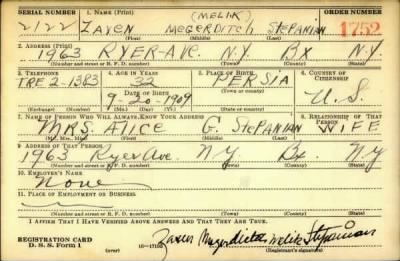 SERIAL NUMBER 1. NAME (Print) (MELIK) ORDER NUMBER
2122 ZAVEN MEGERDITCH STEPANIAN 1752
(First) (Middle) (Last)
2. ADDRESS (Print)
1963 RYER-AVE. N.Y. BX N.Y.
(Number and street or R. F. D. number) (Town) (County) (State)
3. TELEPHONE 4. AGE IN YEARS 5. PLACE OF BIRTH 6. COUNTRY OF CITIZENSHIP
TRE 2-1383 PERSIA U.S.
DATE OF BIRTH
9-20-1909
(Exchange) (Number) (Mo.) (Day) (Yr.) (State or county)
7. NAME OF PERSON WHO WILL ALWAYS KNOW YOUR ADDRESS 8. RELATIONSHIP OF THAT PERSON
MRS. Alice G. STEPANIAN WIFE
(Mr., Mrs., Miss) (First) (Middle) (Last)
9. ADDRESS OF THAT PERSON
1963 Ryer Ave. NY Bx. NY
(Number and street or R. F. D. number) (Town) (County) (State)
10. EMPLOYER'S NAME
None
11. PLACE OF EMPLOYMENT OR BUSINESS
(Number and street or R. F. D. number) (Town) (County) (State)
I AFFIRM THAT I HAVE VERIFIED ABOVE ANSWERS AND THAT THEY ARE TRUE.
REGISTRATION CARD
D. S. S. Form 1 (over) Zaven Megerditch Melik Stepanian
(Registrant's signature)